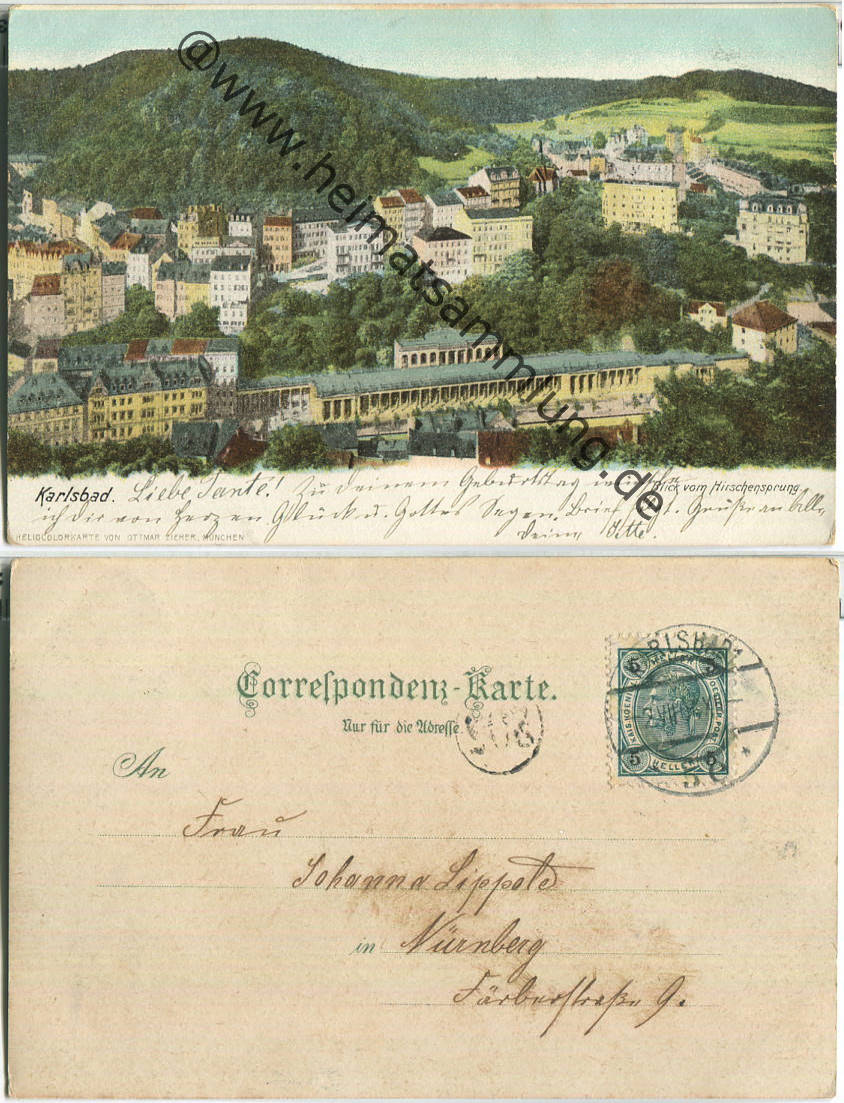 Karlsbad.
Blick vom Hirschensprung.
Liebe Tante! Zu deinem Geburtstag wünsche
ich Dir von Herzen Glück u. Gottes Segen. Brief folgt. Grüße an alle,
deine
HELIOCOLORKARTE VON OTTMAR ZIEHER, MÜNCHEN
@www.heimatsammlung.de
Correspondenz-Karte.
Nur für die Adresse.
An
Frau
Johanna Lippold
in Nürnberg
Färberstraße 9.
KARLSBAD
5 5
5 5
HELLER